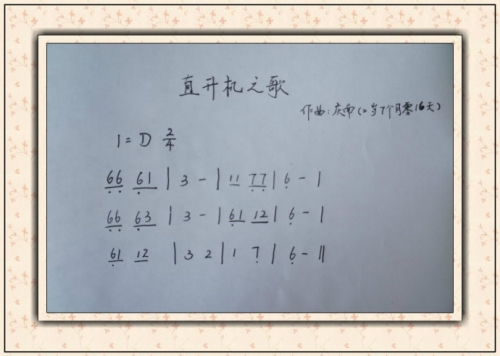 直升机之歌
作曲:庆南(2岁7个月零16天)
1=D 2/4
6̣6̣ 6̣1 | 3 - | 11 7̣7̣ | 6̣ - |
6̣6̣ 6̣3 | 3 - | 6̣1 12 | 6̣ - |
6̣1 12 | 3 2 | 1 7̣ | 6̣ - ‖